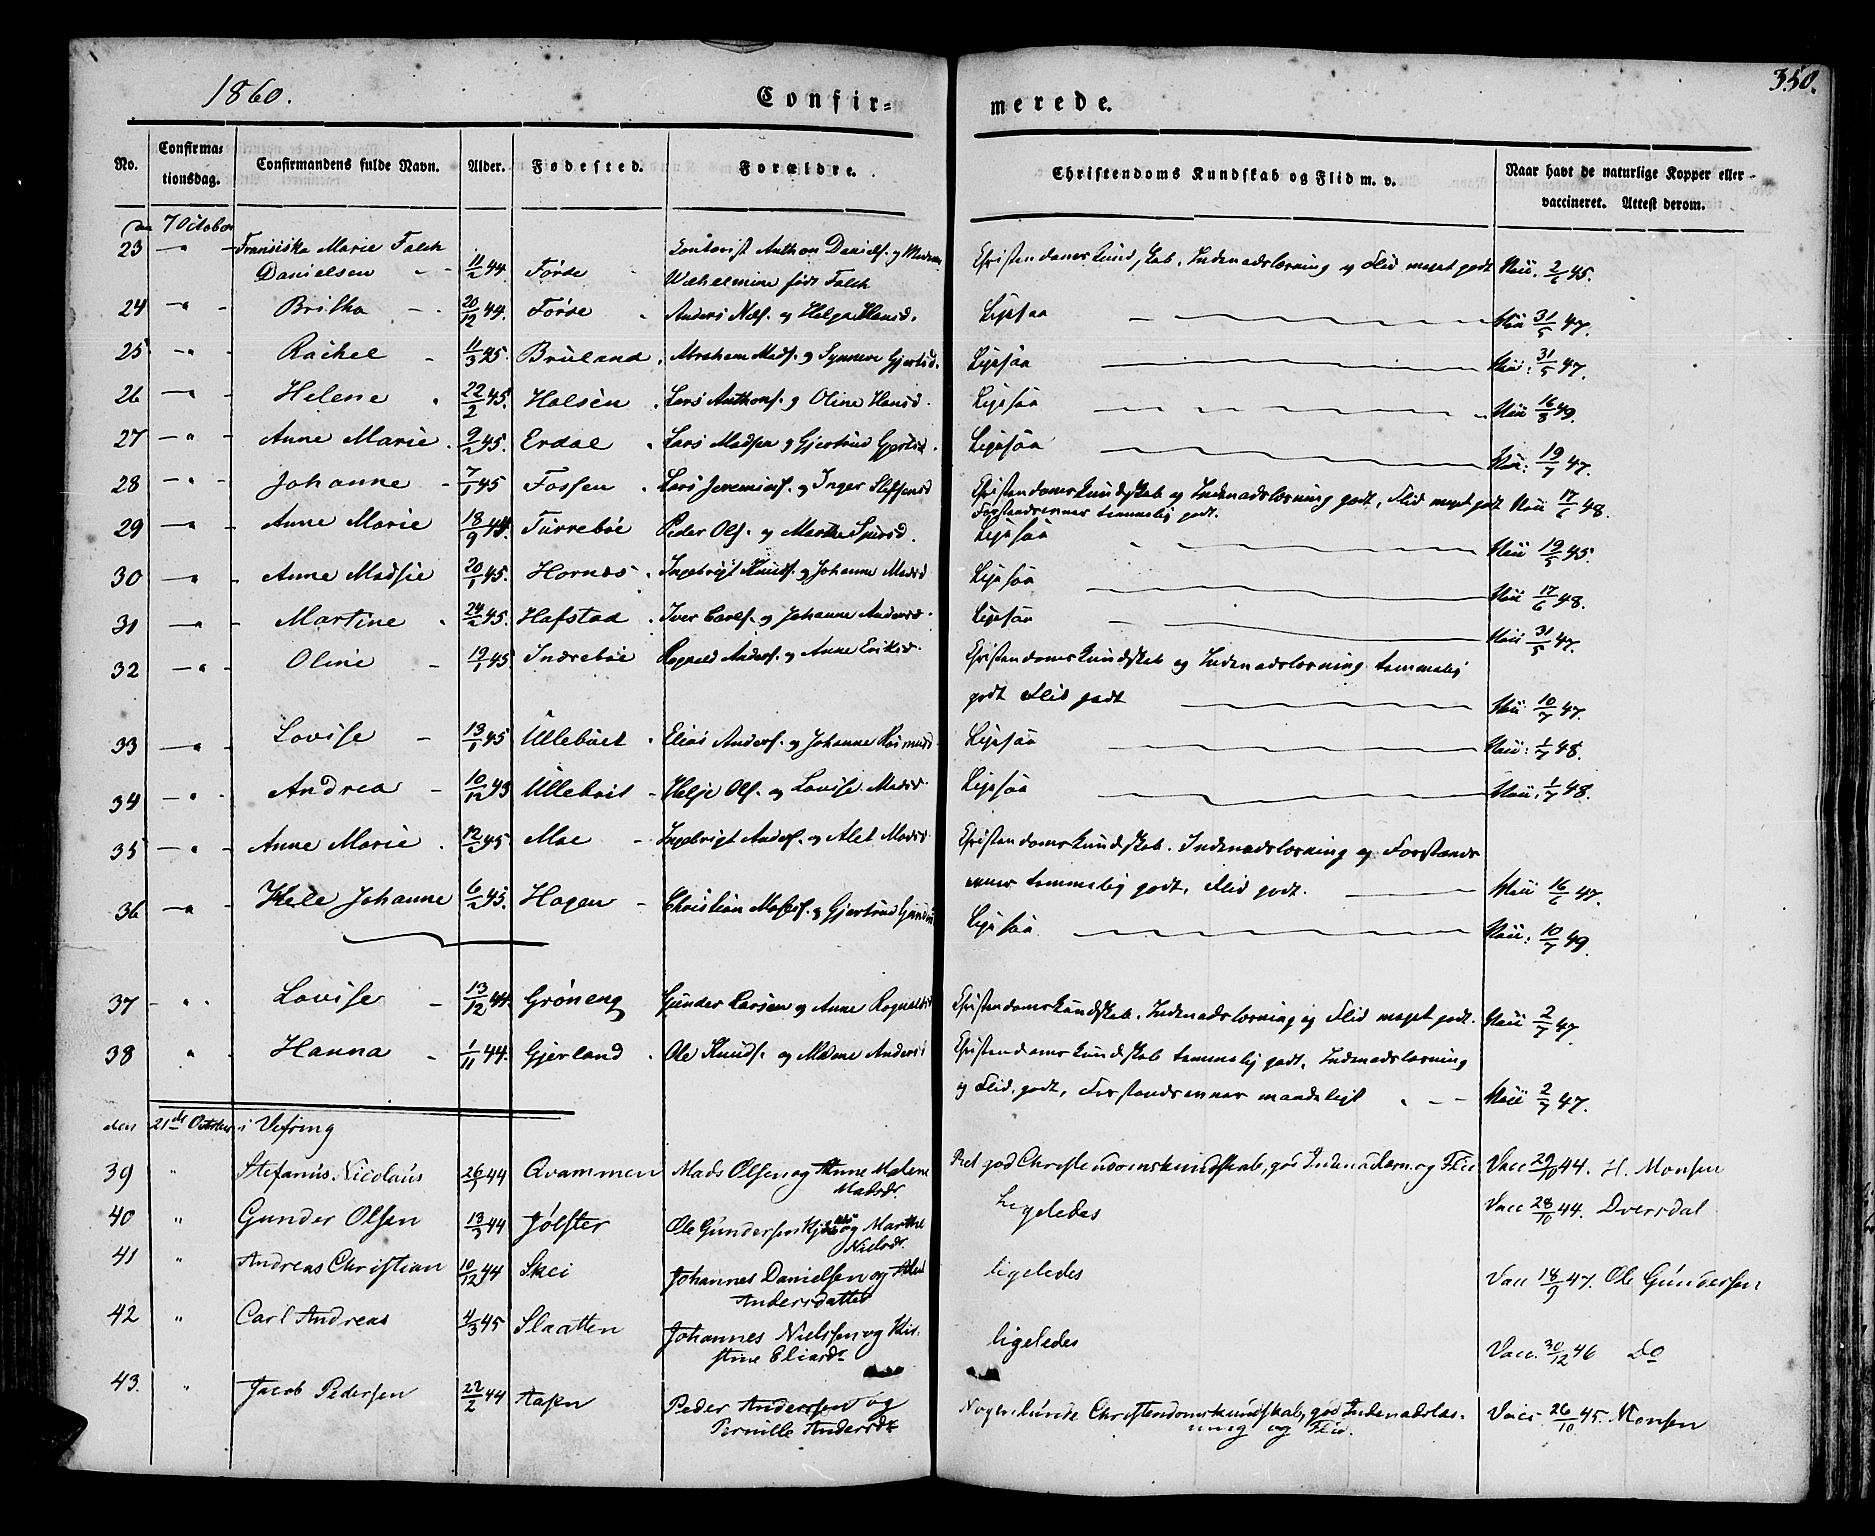 1860. Confir= merede. 350.
No. Confirma= tionsdag. Confirmandens fulde Navn. Alder. Fødested. Forældre. Christendoms Kundskab og Flid m. v. Naar havt de naturlige Kopper eller vaccineret. Attest derom.
7 October
23 Fransiska Marie Falch Danielsen 11/2 44. Førde Anthon Daniels. og født Falch Christendomskundskab, Indenadslæsning og Flid meget godt 2/6 45.
24 20/12 44. Førde Anders Nils. og Helga Hansd. Ligesaa 31/5 47.
25 Rachel 11/3 45. Bruland Abraham Mads. og Synneve Gjertsd. Ligesaa 31/5 47.
26 Helene 22/2 45. Halsen Lars Anthons. og Oline Hansd. Ligesaa 16/8 49.
27 Anne Marie 9/2 45. Erdal Lars Madsen og Gjertrud Gjertsd. Ligesaa 19/7 47.
28 Johanne 7/1 45 Fossen Lars Jeremias. og Inger Steffensd Christendomskundskab og Indenadslæsning godt, Flid meget godt Forstandsevner temmelig godt. 17/6 48.
29 Anne Marie 18/9 44. Turrebøe Peder Ols. og Marthe Ligesaa 19/5 45.
30 Anne Madsie 20/1 45. Hornes Ingebrigt Knuds. og Johanne Madsd Ligesaa 17/6 48.
31 Martine 24/2 45. Hafstad Iver Carls. og Johanne Andersd. Ligesaa 31/5 47.
32 Oline 19/1 45. Indrebøe Ragnald Anders. og Anne Eriksd. Christendomskundskab og Indenadslæsning temmelig godt Flid godt 10/7 47.
33 Lovise 13/1 45 Ullebøet Elias Anders. og Johanne Rasmusd. Ligesaa 1/7 48.
34 Andrea 10/12 43 Ullebøet Helje Ols. og Lovise Madsd. Ligesaa 1/7 48.
35 Anne Marie 12/2 45 Moe Ingebrigt Anders. og Alet Madsd. Christendomskundskab. Indenadslæsning og Forstands evner temmelig godt, Flid godt. 16/6 47.
36 Johanne 6/2 45. Hagen Christian og Gjertrud Ligesaa 10/7 49.
37 Lovise 13/12 44. Grøneng Gunder Larsen og Anne Ragnaldsd Christendomskundskab. Indenadslæsning og Flid meget godt. 2/7 47.
38 Hanna 1/11 44. Gjerland Ole Knuds. og Malene Andersd Christendomskundskab temmelig godt, Indenadslæsning og Flid godt, Forstandsevner maadeligt 2/7 47.
den 21de October i Vefring
39 Stefanus Nicolaus 26/9 44 Qvammen Mads Olsen og Anne Malene Madsdr. Ret god Christendomskundskab, god Indenadlæsn. og Flid Vacc 29/10 44. H. Monsen
40 Gunder Olsen 13/3 44 Jølster Ole Gundersen og Marthe Nielsdr. Ligeledes Vacc 28/10 44. Dversdal
41 Andreas Christian 10/12 44 Skei Johannes Danielsen og Alet Andersdatter ligeledes Vacc 18/9 47. Ole Gundersen
42 Carl Andreas 4/3 45 Slaatten Johannes Nielssen og Kir= stine Eliasdr ligeledes Vacc. 30/12 46 Do
43. Jacob Pedersen 22/2 44 Aasen Peder Anderssen og Pernille Andersdr Nogenlunde Christendomskundskab, god Indenadslæs= ning og Flid. Vacc. 26/10 45. Monsen